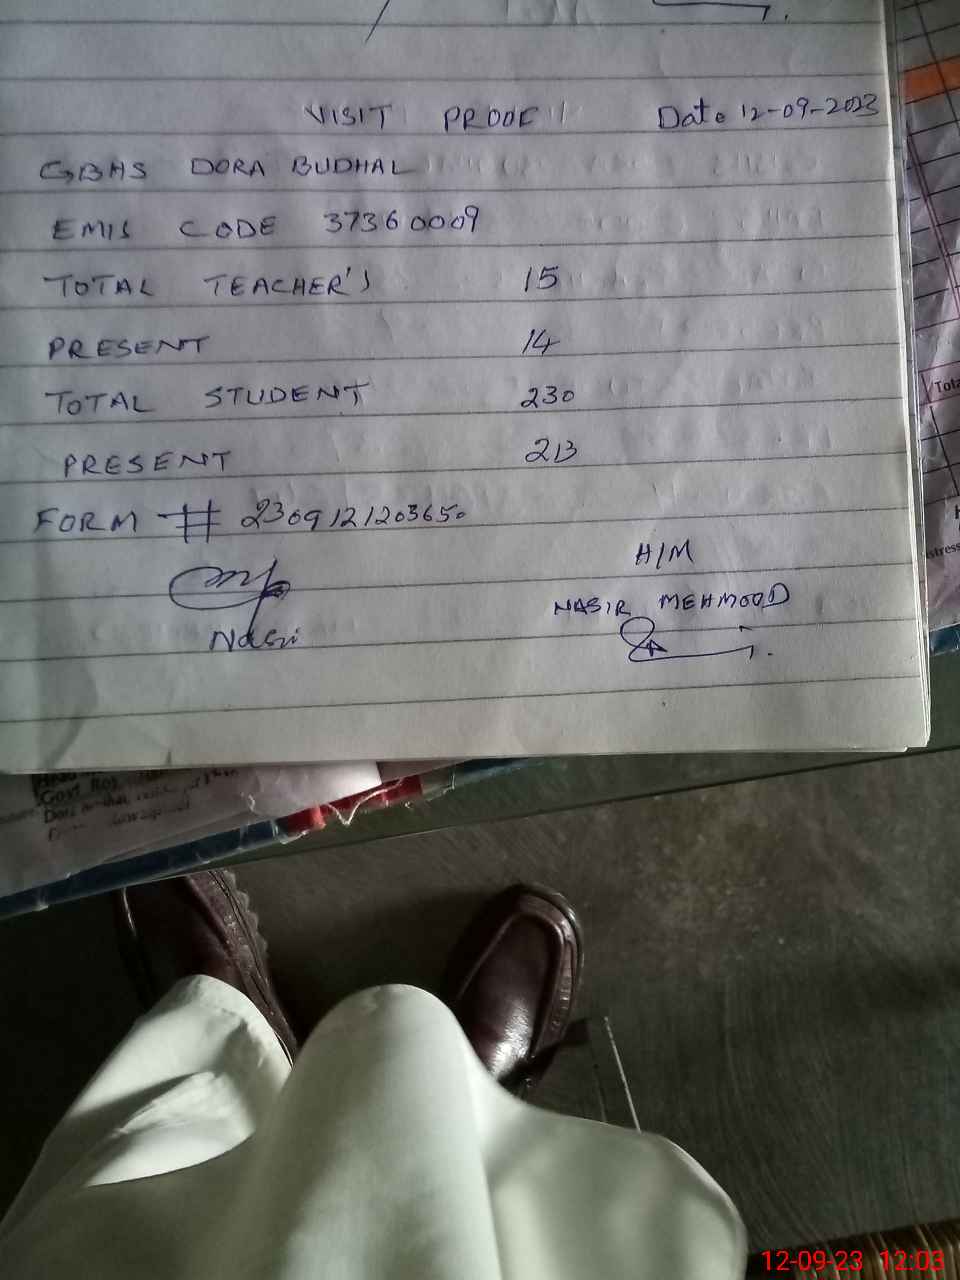 VISIT PROOF Date 12-09-2023
GBHS DORA BUDHAL
EMIS CODE 37360009
TOTAL TEACHER'S 15
PRESENT 14
TOTAL STUDENT 230
PRESENT 213
FORM # 2309121203650
H/M
NASIR MEHMOOD
Nasir
Tota
stress
Govt
12-09-23 12:03